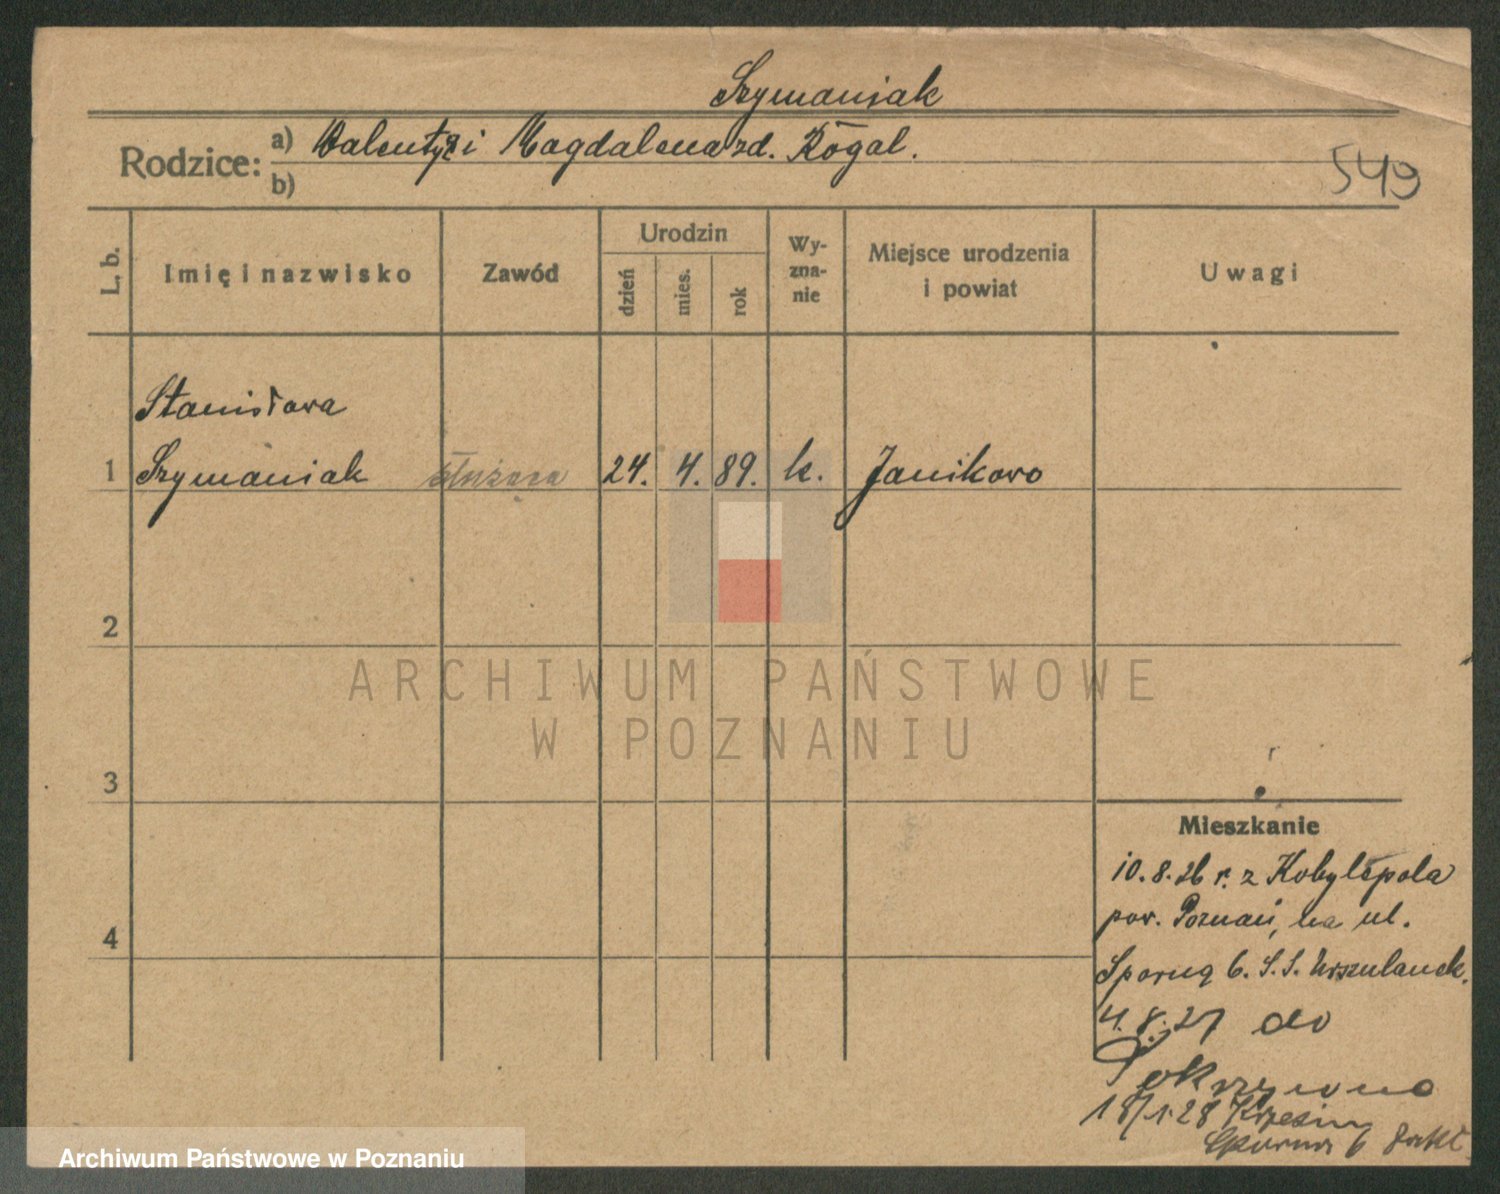 Szymaniak
Rodzice: a) Walenty i Magdalena zd. Rogal.
b)
549
L. b.
Imię i nazwisko
Zawód
Urodzin
dzień
mies.
rok
Wy-
zna-
nie
Miejsce urodzenia
i powiat
Uwagi
Stanisława
1 Szymaniak służąca 24. 4. 89. k. Janikowo
2
ARCHIWUM PAŃSTWOWE
W POZNANIU
3
Mieszkanie
4
10.8.26 r. z Kobylepola
pow. Poznań, na ul.
Sporną 6. S.S. Urszulanek.
4.8.27 do
Pokrzywno
18/1.28
Archiwum Państwowe w Poznaniu